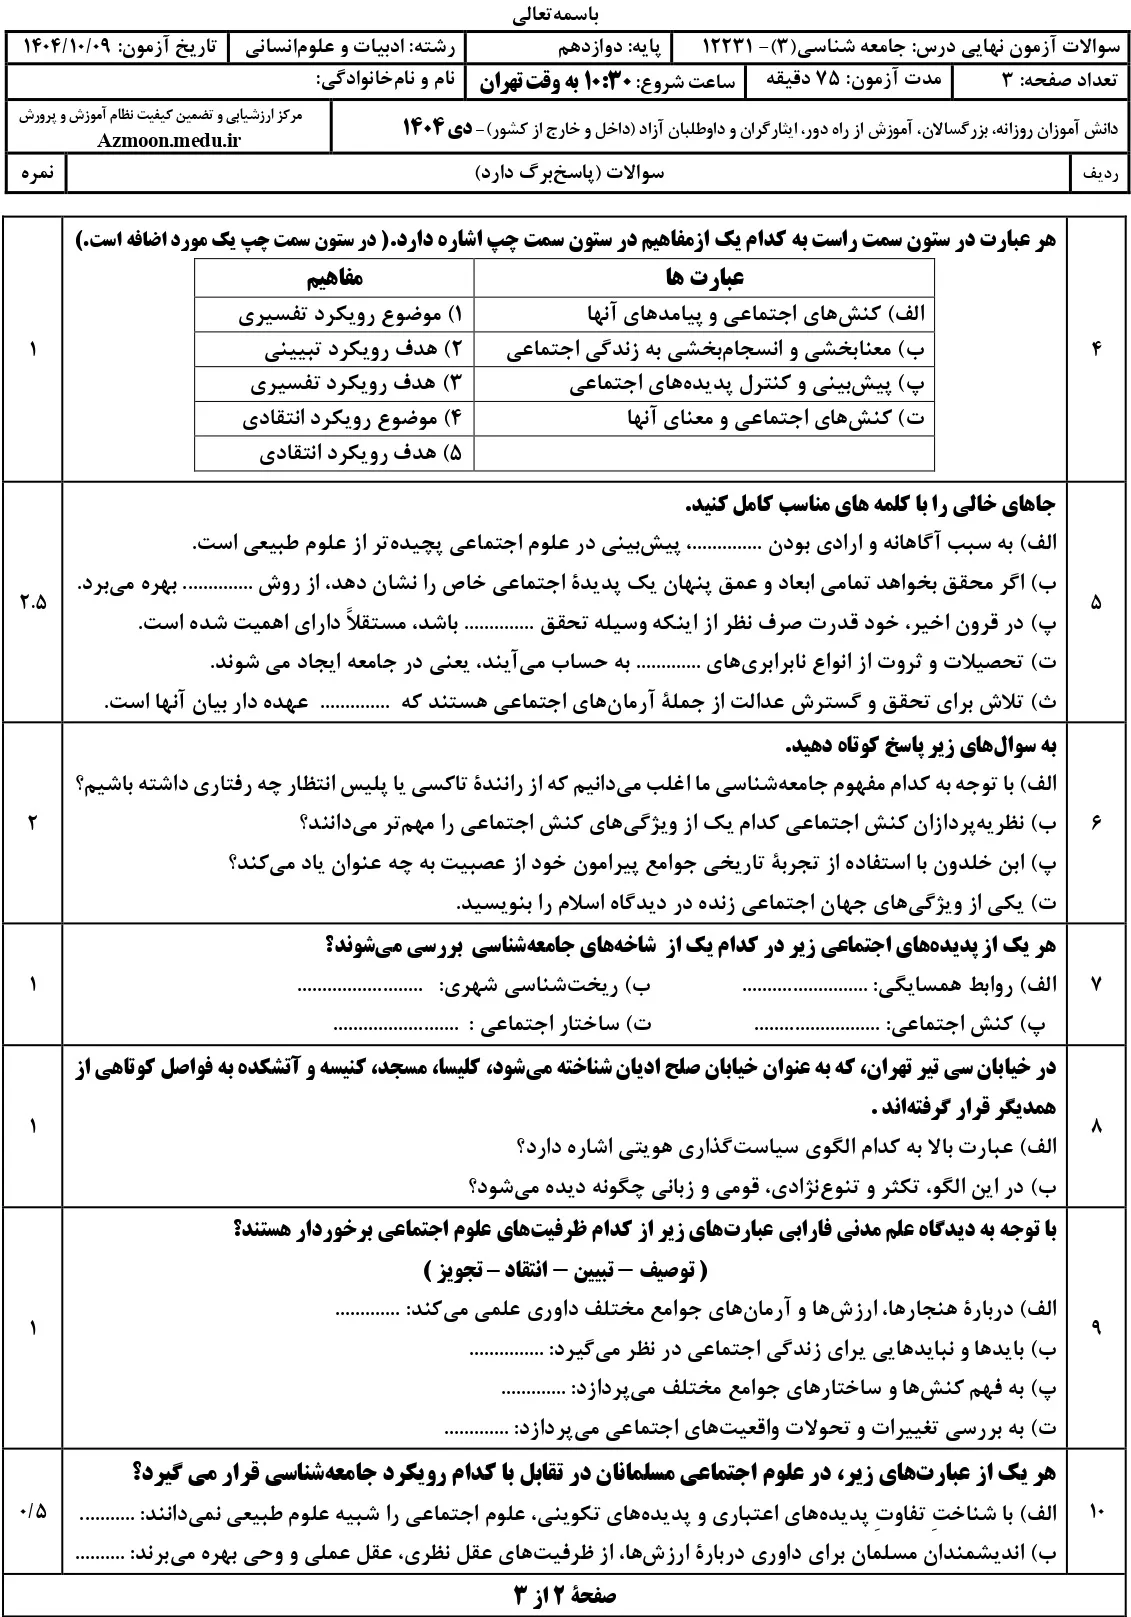 باسمه‌تعالی
سوالات آزمون نهایی درس: جامعه شناسی(۳) - ۱۲۲۳۱ پایه: دوازدهم رشته: ادبیات و علوم‌انسانی تاریخ آزمون: ۱۴۰۴/۱۰/۰۹
تعداد صفحه: ۳ مدت آزمون: ۷۵ دقیقه ساعت شروع: ۱۰:۳۰ به وقت تهران نام و نام‌خانوادگی:
دانش آموزان روزانه، بزرگسالان، آموزش از راه دور، ایثارگران و داوطلبان آزاد (داخل و خارج از کشور) – دی ۱۴۰۴ مرکز ارزشیابی و تضمین کیفیت نظام آموزش و پرورش
Azmoon.medu.ir
ردیف سوالات (پاسخ‌برگ دارد) نمره
هر عبارت در ستون سمت راست به کدام یک ازمفاهیم در ستون سمت چپ اشاره دارد.( در ستون سمت چپ یک مورد اضافه است.)
عبارت ها مفاهیم
الف) کنش‌های اجتماعی و پیامدهای آنها ۱) موضوع رویکرد تفسیری
۴ ب) معنابخشی و انسجام‌بخشی به زندگی اجتماعی ۲) هدف رویکرد تبیینی ۱
پ) پیش‌بینی و کنترل پدیده‌های اجتماعی ۳) هدف رویکرد تفسیری
ت) کنش‌های اجتماعی و معنای آنها ۴) موضوع رویکرد انتقادی
۵) هدف رویکرد انتقادی
جاهای خالی را با کلمه های مناسب کامل کنید.
الف) به سبب آگاهانه و ارادی بودن ..............، پیش‌بینی در علوم اجتماعی پچیده‌تر از علوم طبیعی است.
ب) اگر محقق بخواهد تمامی ابعاد و عمق پنهان یک پدیدهٔ اجتماعی خاص را نشان دهد، از روش .............. بهره می‌برد.
۵ ۲.۵
پ) در قرون اخیر، خود قدرت صرف نظر از اینکه وسیله تحقق .............. باشد، مستقلاً دارای اهمیت شده است.
ت) تحصیلات و ثروت از انواع نابرابری‌های ............. به حساب می‌آیند، یعنی در جامعه ایجاد می شوند.
ث) تلاش برای تحقق و گسترش عدالت از جملهٔ آرمان‌های اجتماعی هستند که .............. عهده دار بیان آنها است.
به سوال‌های زیر پاسخ کوتاه دهید.
الف) با توجه به کدام مفهوم جامعه‌شناسی ما اغلب می‌دانیم که از رانندهٔ تاکسی یا پلیس انتظار چه رفتاری داشته باشیم؟
۶ ب) نظریه‌پردازان کنش اجتماعی کدام یک از ویژگی‌های کنش اجتماعی را مهم‌تر می‌دانند؟ ۲
پ) ابن خلدون با استفاده از تجربهٔ تاریخی جوامع پیرامون خود از عصبیت به چه عنوان یاد می‌کند؟
ت) یکی از ویژگی‌های جهان اجتماعی زنده در دیدگاه اسلام را بنویسید.
هر یک از پدیده‌های اجتماعی زیر در کدام یک از شاخه‌های جامعه‌شناسی بررسی می‌شوند؟
۷ الف) روابط همسایگی: ......................... ب) ریخت‌شناسی شهری: ......................... ۱
پ) کنش اجتماعی: ......................... ت) ساختار اجتماعی : .........................
در خیابان سی تیر تهران، که به عنوان خیابان صلح ادیان شناخته می‌شود، کلیسا، مسجد، کنیسه و آتشکده به فواصل کوتاهی از
همدیگر قرار گرفته‌اند .
۸ ۱
الف) عبارت بالا به کدام الگوی سیاست‌گذاری هویتی اشاره دارد؟
ب) در این الگو، تکثر و تنوع‌نژادی، قومی و زبانی چگونه دیده می‌شود؟
با توجه به دیدگاه علم مدنی فارابی عبارت‌های زیر از کدام ظرفیت‌های علوم اجتماعی برخوردار هستند؟
( توصیف – تبیین – انتقاد – تجویز )
الف) دربارهٔ هنجارها، ارزش‌ها و آرمان‌های جوامع مختلف داوری علمی می‌کند: .............
۹ ۱
ب) بایدها و نبایدهایی یرای زندگی اجتماعی در نظر می‌گیرد: ...............
پ) به فهم کنش‌ها و ساختارهای جوامع مختلف می‌پردازد: .............
ت) به بررسی تغییرات و تحولات واقعیت‌های اجتماعی می‌پردازد: .............
هر یک از عبارت‌های زیر، در علوم اجتماعی مسلمانان در تقابل با کدام رویکرد جامعه‌شناسی قرار می گیرد؟
۱۰ الف) با شناختِ تفاوتِ پدیده‌های اعتباری و پدیده‌های تکوینی، علوم اجتماعی را شبیه علوم طبیعی نمی‌دانند: ........... ۰/۵
ب) اندیشمندان مسلمان برای داوری دربارهٔ ارزش‌ها، از ظرفیت‌های عقل نظری، عقل عملی و وحی بهره می‌برند: ..........
صفحهٔ ۲ از ۳